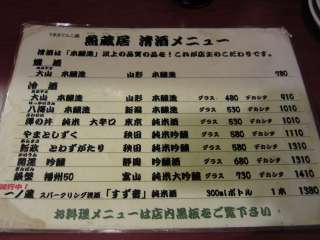 黒蔵居 清酒メニュー
清酒は「本醸造」以上の品質の品を!これが店主のこだわりです。
燗酒
大山 本醸造 山形 本醸造 780
冷酒
大山 本醸造 山形 本醸造 グラス 480 デカンタ 910
八尾山 本醸造 新潟 本醸造 グラス 530 デカンタ 1010
澤の井 純米 大辛口 東京 純米酒 グラス 530 デカンタ 1010
やまとしずく 秋田 純米吟醸 グラス 680 デカンタ 1310
新政 とわずがたり 秋田 純米吟醸 グラス 680 デカンタ 1310
開運 吟醸 静岡 吟醸酒 グラス 680 デカンタ 1310
銀盤 播州50 富山 純米大吟醸 グラス 680 デカンタ 1310
一ノ蔵 スパークリング清酒「すず音」純米酒 300mlボトル 1本 1380
お料理メニューは店内黒板をご覧下さい